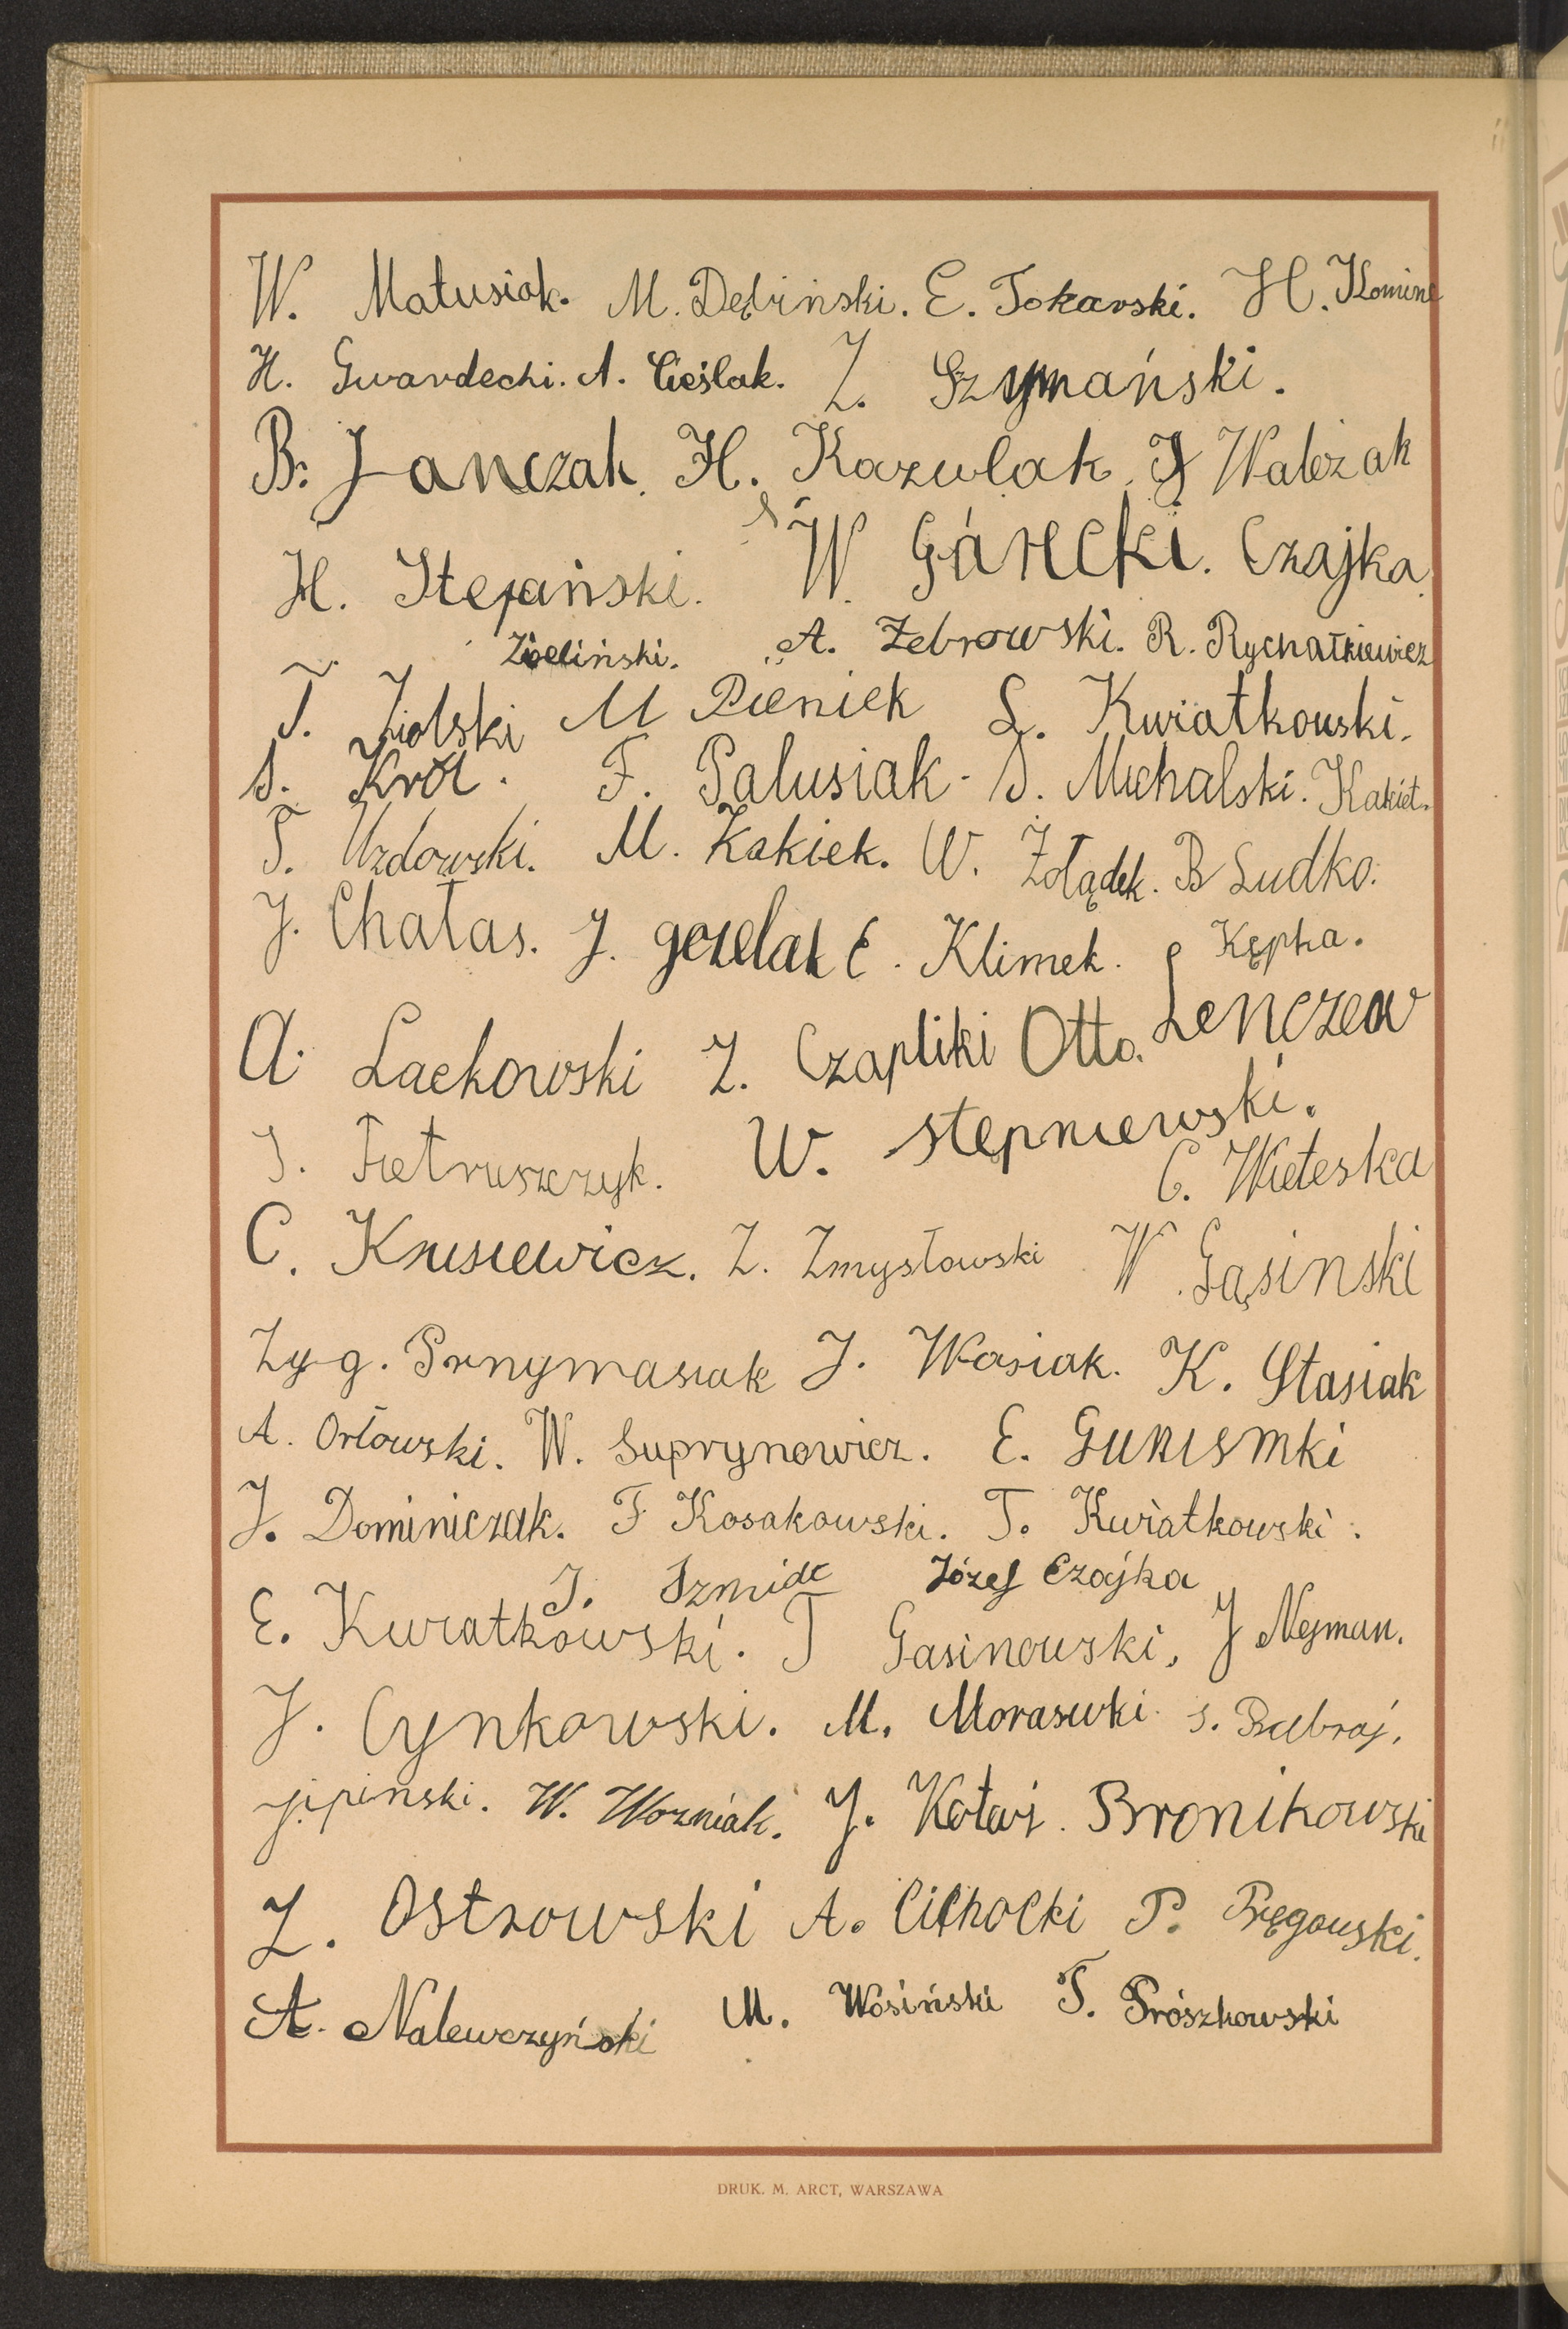 W. Matusiak. M. Dębiński. E. Tokarski. H. Komine
H. Gwardecki. A. Cieślak. Z. Szymański.
B. Janczak. H. Kazulak. J Walczak
H. Stefański. W. Górecki. Czajka.
Zieliński. A. Żebrowski. R. Rychałkiewicz
T. Ziolski M Pieniek L. Kwiatkowski.
S. Król. F. Palusiak. S. Michalski. Kakiet.
T. Uzdowski. M. Kakiek. W. Żołądek. B Ludko.
J. Chałas. J. gozelak E. Klimek. Kępka.
A. Lackowski Z. Czapliki Otto. Lenczew
S. Pietruszczyk. W. Stępniewski.
C. Wieteska
C. Krusiewicz. Z. Zmysłowski W. Gąsinski
Zyg. Przymasiak J. Wasiak. K. Stasiak
A. Orłowski. W. Suprynowicz. E.
J. Dominiczak. F Kosakowski. T. Kwiatkowski.
J. Szmidt Józef Czajka
E. Kwiatkowski. T Gasinowski, J Nejman.
J. Cynkowski. M. Moraswki. S.
J. Lipinski. W. Wozniak. J. Bronikowski
Z. Ostrowski A. Cichocki P. Pręgowski.
A. Nalewczyński M. Wosiński T. Prószkowski
DRUK. M. ARCT, WARSZAWA